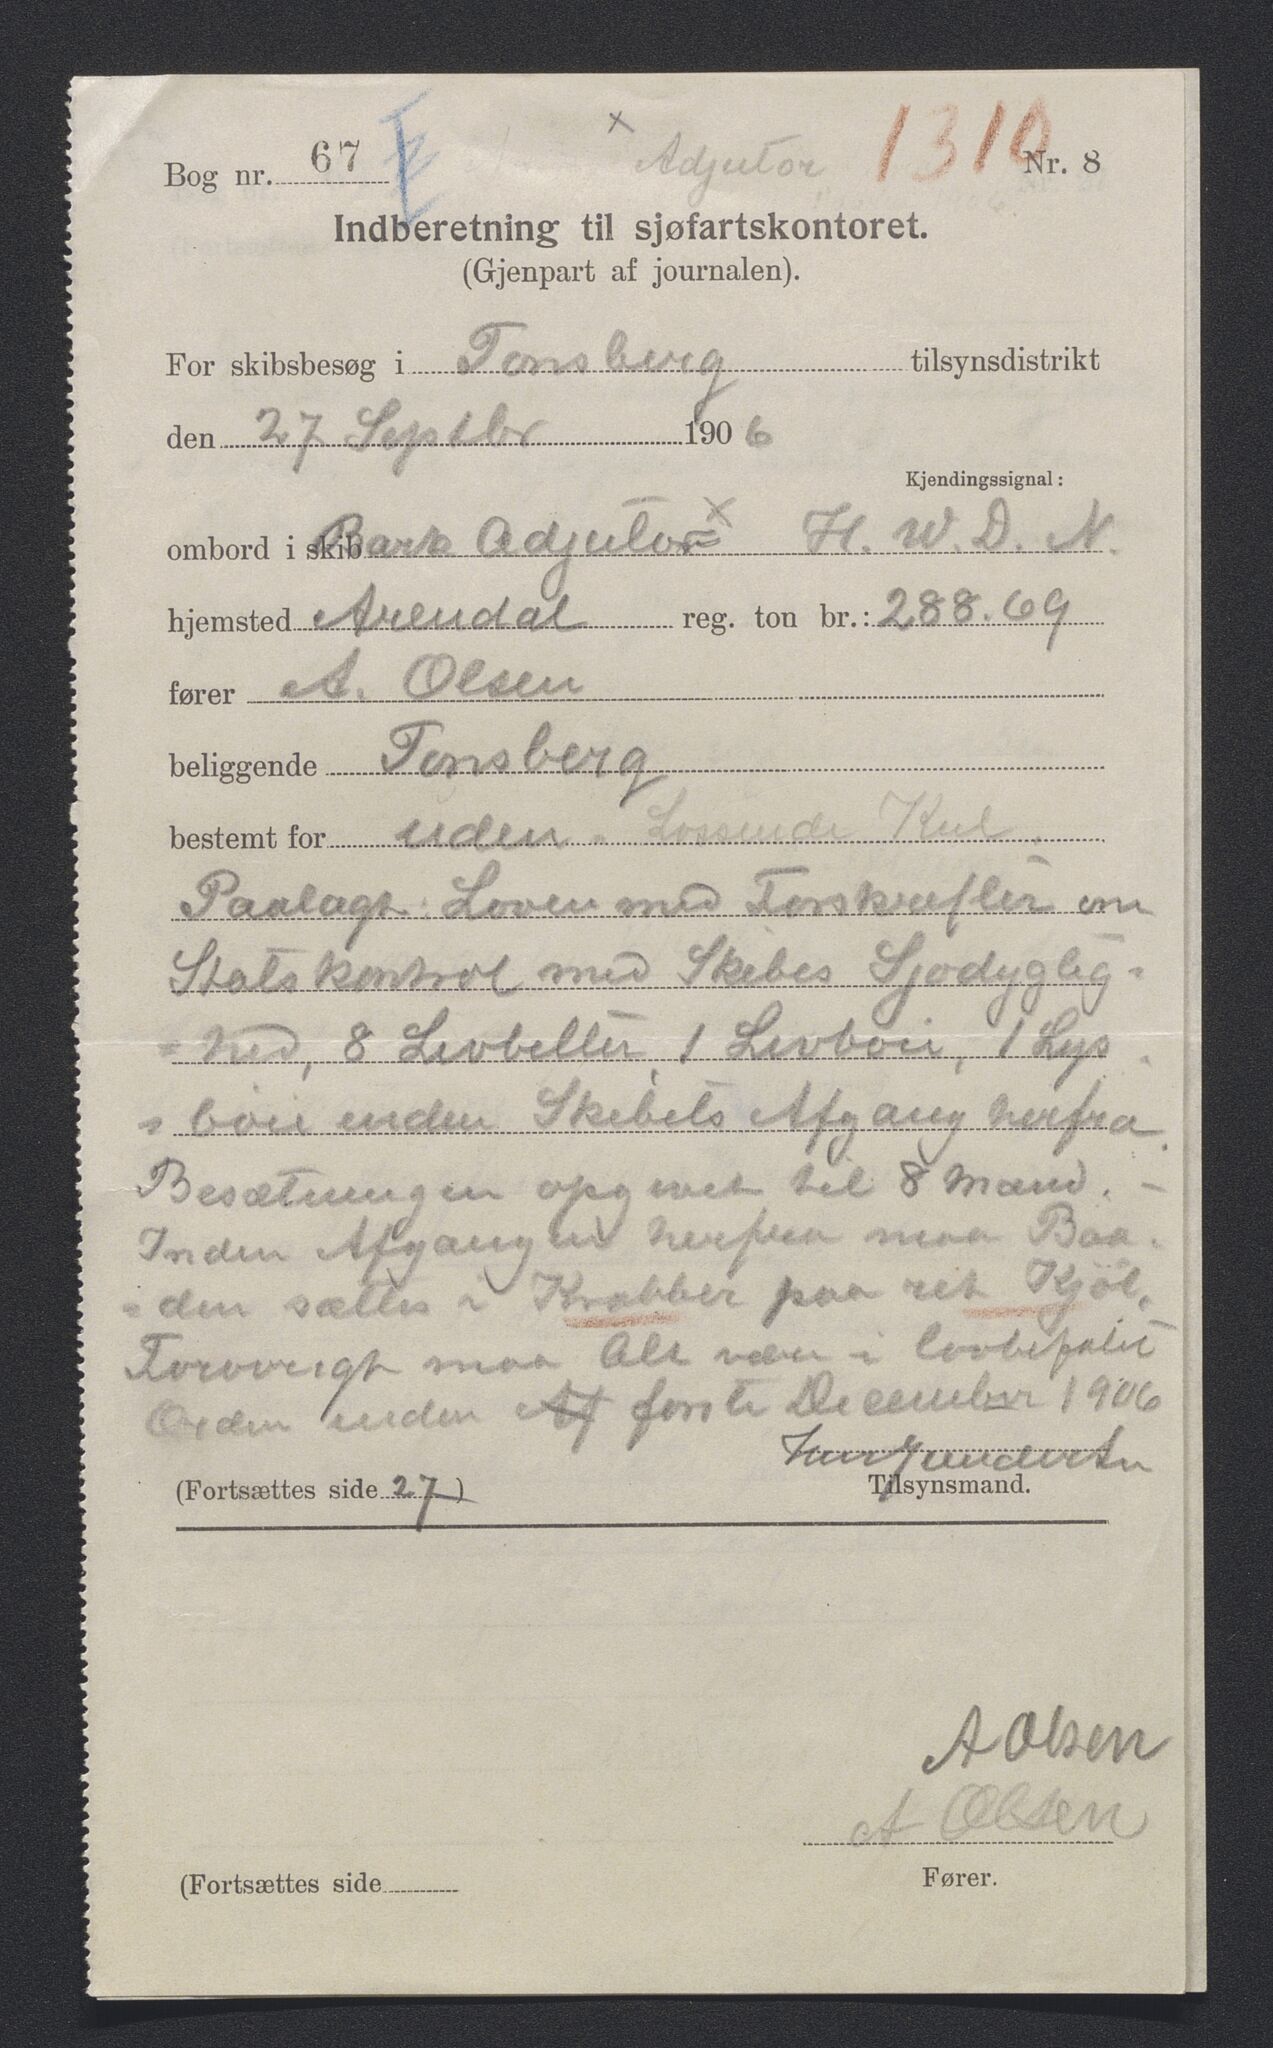 Bog nr. 67 Adjutor 1310 Nr. 8
Indberetning til sjøfartskontoret.
(Gjenpart af journalen).
For skibsbesøg i Tonsberg tilsynsdistrikt
den 27 Septbr 1906
Kjendingssignal:
ombord i skib Bark Adjutor x H. W. D. N.
hjemsted Arendal reg. ton br.: 288.69
fører A. Olsen
beliggende Tonsberg
bestemt for uden - Lossende Kul.
Paalagt: Loven med Forskrefter om
Statskontrol med Skibes Sjodyglig-
-hed, 8 Levbelter, 1 Levboie, 1 Lys-
-boie inden Skibets Afgang herfra.
Besætningen opgivet til 8 Mand. -
Inden Afgangen herfra maa Baa-
-den sættes i Krabber paa ret Kjöl.
Forovrigt maa Alt være i lovbefalet
Orden inden Af forste December 1906
(Fortsættes side 27) Tilsynsmand.
A Olsen
A Olsen
(Fortsættes side Fører.